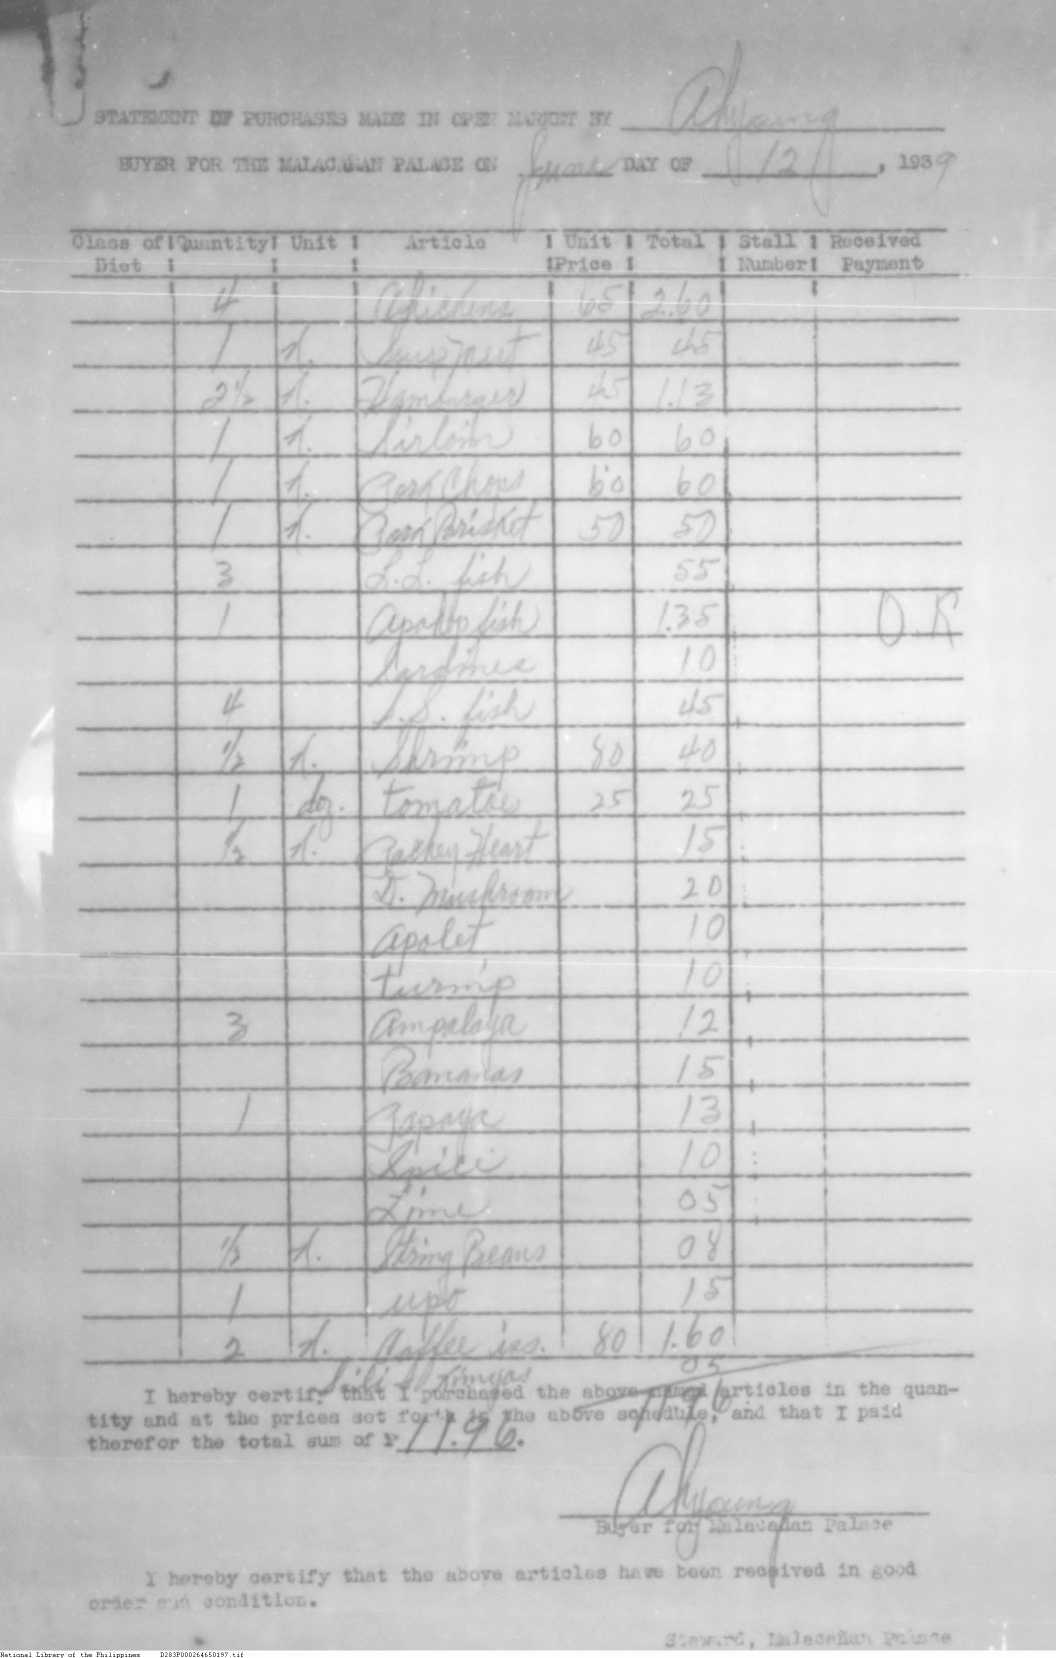 STATEMENT OF PURCHASES MADE IN OPEN MARKET BY Ahyoung
BUYER FOR THE MALACAÑAN PALACE ON June DAY OF 12, 1939
Class of Diet | Quantity | Unit | Article | Unit Price | Total | Stall Number | Received Payment
4 Chickens 65 2.60
1 K. Soup meat 45 45
2½ K. Hamburger 45 1.13
1 K. Sirloin 60 60
1 K. Pork Chops 60 60
1 K. Pork Brisket 50 50
3 L.L. fish 55
1 Apahap fish 1.35 O.K
Sardines 10
4 S.S. fish 45
½ K. Shrimp 80 40
1 doz. tomatoe 25 25
½ K. Heart 15
D. Mushroom 20
Apalet 10
turnip 10
3 Ampalaya 12
Bananas 15
1 Papaya 13
Spice 10
Lime 05
½ K. String Beans 08
1 upo 15
2 K. Coffee 80 1.60
Sili 05
I hereby certify that I purchased the above named articles in the quan-
11.96
tity and at the prices set forth in the above schedule, and that I paid
therefor the total sum of ₱ 11.96.
Ahyoung
Buyer for Malacañan Palace
I hereby certify that the above articles have been received in good
order and condition.
Steward, Malacañan Palace
National Library of the Philippines D283P000264650197.tif